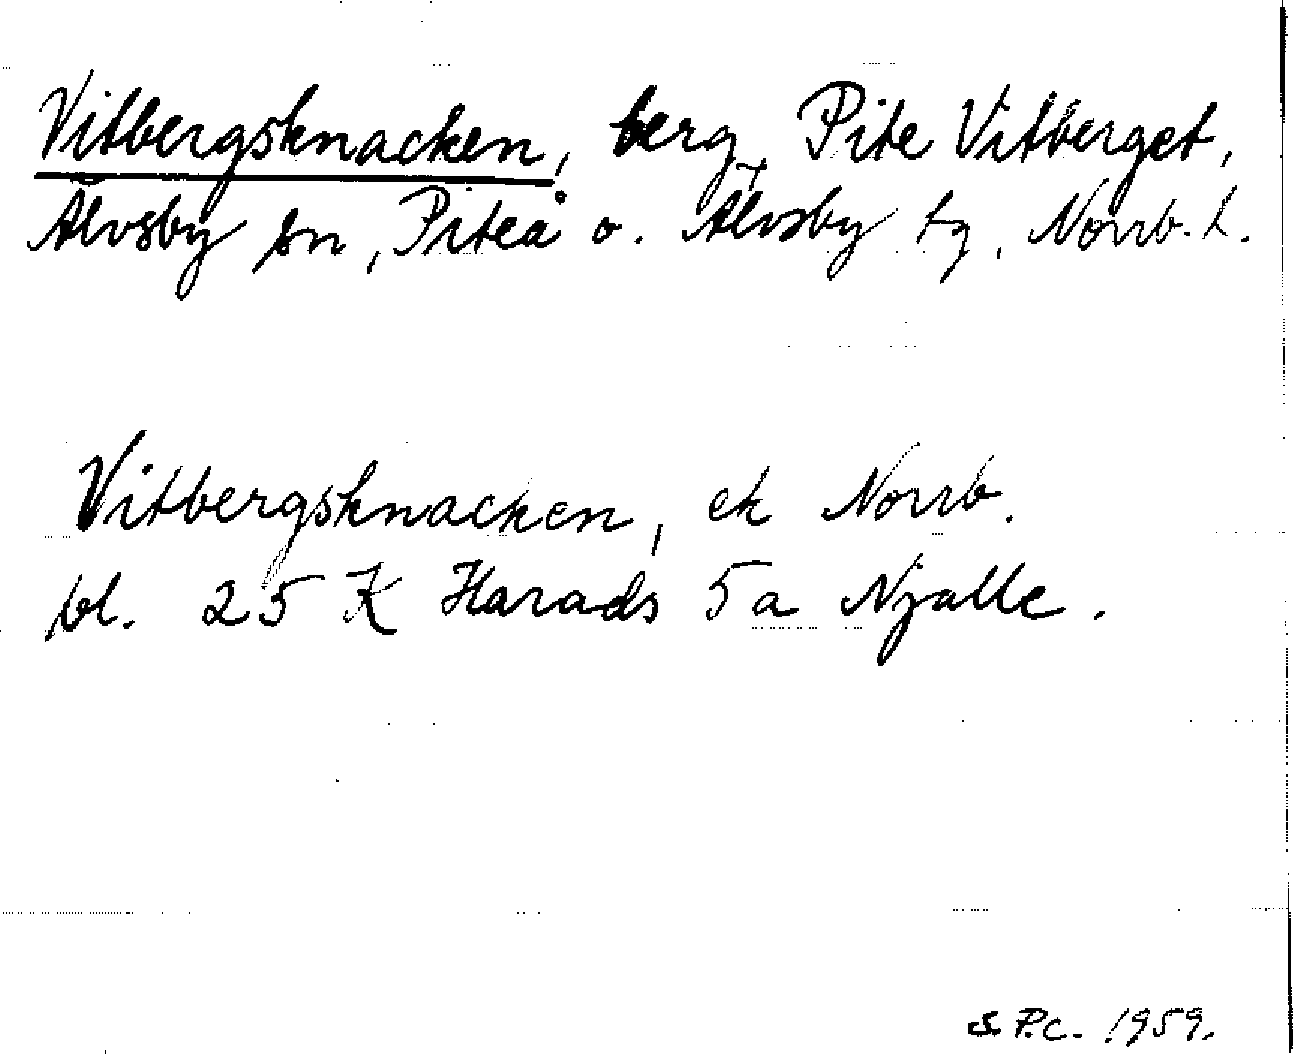 Vitbergsknacken, berg, Pite Vitberget,
Älvsby sn, Piteå o. Älvsby tg, Norrb. l.
Vitbergsknacken, ek Norrb.
bl. 25 K Harads 5a Njalle.
S.P.C. 1959.